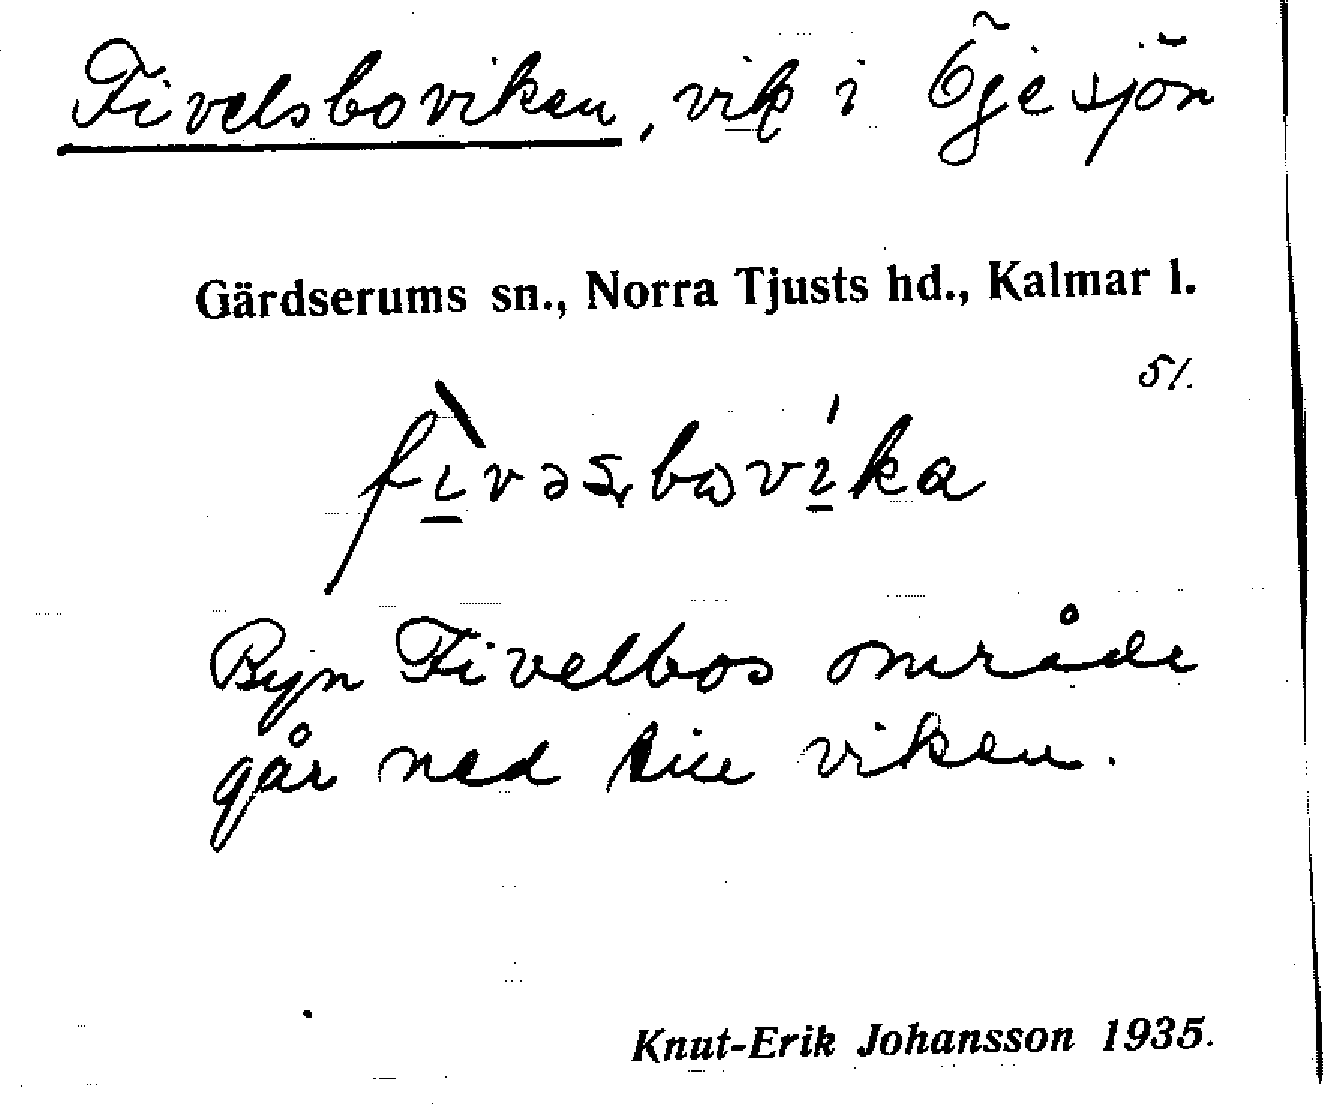 Fivelsboviken, vik i Öjesjön
Gärdserums sn., Norra Tjusts hd., Kalmar l.
51.
Byn Fivelbos område
går ned till viken.
Knut-Erik Johansson 1935.